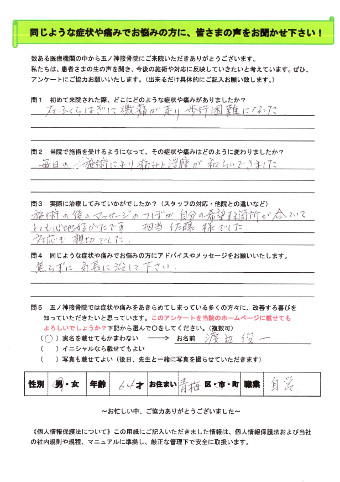 同じような症状や痛みでお悩みの方に、皆さまの声をお聞かせ下さい！
数ある医療機関の中から五ノ神接骨院にご来院いただきありがとうございます。
私たちは、患者さまの生の声を聞き、今後の施術や対応に反映していきたいと考えています。ぜひ、
アンケートにご協力お願いいたします。（出来るだけ具体的にご記入お願い致します。）
問1 初めて来院された際、どこにどのような症状や痛みがありましたか？
右ふくらはぎに激痛が走り歩行困難になった
問2 当院で施術を受けるようになって、その症状や痛みはどのように変わりましたか？
毎日の施術により痛みと が和らいできました
問3 実際に治療してみていかがでしたか？（スタッフの対応・他院との違いなど）
施術の後のマッサージのつぼが自分の希望する箇所が入っていて
とても心地よかったです 担当佐藤様でした
対応も親切でした。
問4 同じような症状や痛みでお悩みの方にアドバイスやメッセージをお願いいたします。
焦らずに気長に治して下さい
問5 五ノ神接骨院では症状や痛みをあきらめてしまっている多くの方々に、改善する喜びを
知っていただきたいと思っています。このアンケートを当院のホームページに載せても
よろしいでしょうか？下記から選んで○をしてください。（複数可）
（○）実名を載せてもかまわない → お名前 渡辺 一
（ ）イニシャルなら載せてもよい
（ ）写真も載せてよい（後日、先生と一緒に写真を撮らせていただきます）
性別 男・女 年齢 64才 お住まい 青梅 区・市・町 職業 自営
～お忙しい中、ご協力ありがとうございました～
《個人情報保護法について》この用紙にご記入いただきました情報は、個人情報保護法および当社
の社内規則や規程、マニュアルに準拠し、厳正な管理下で安全に取扱います。